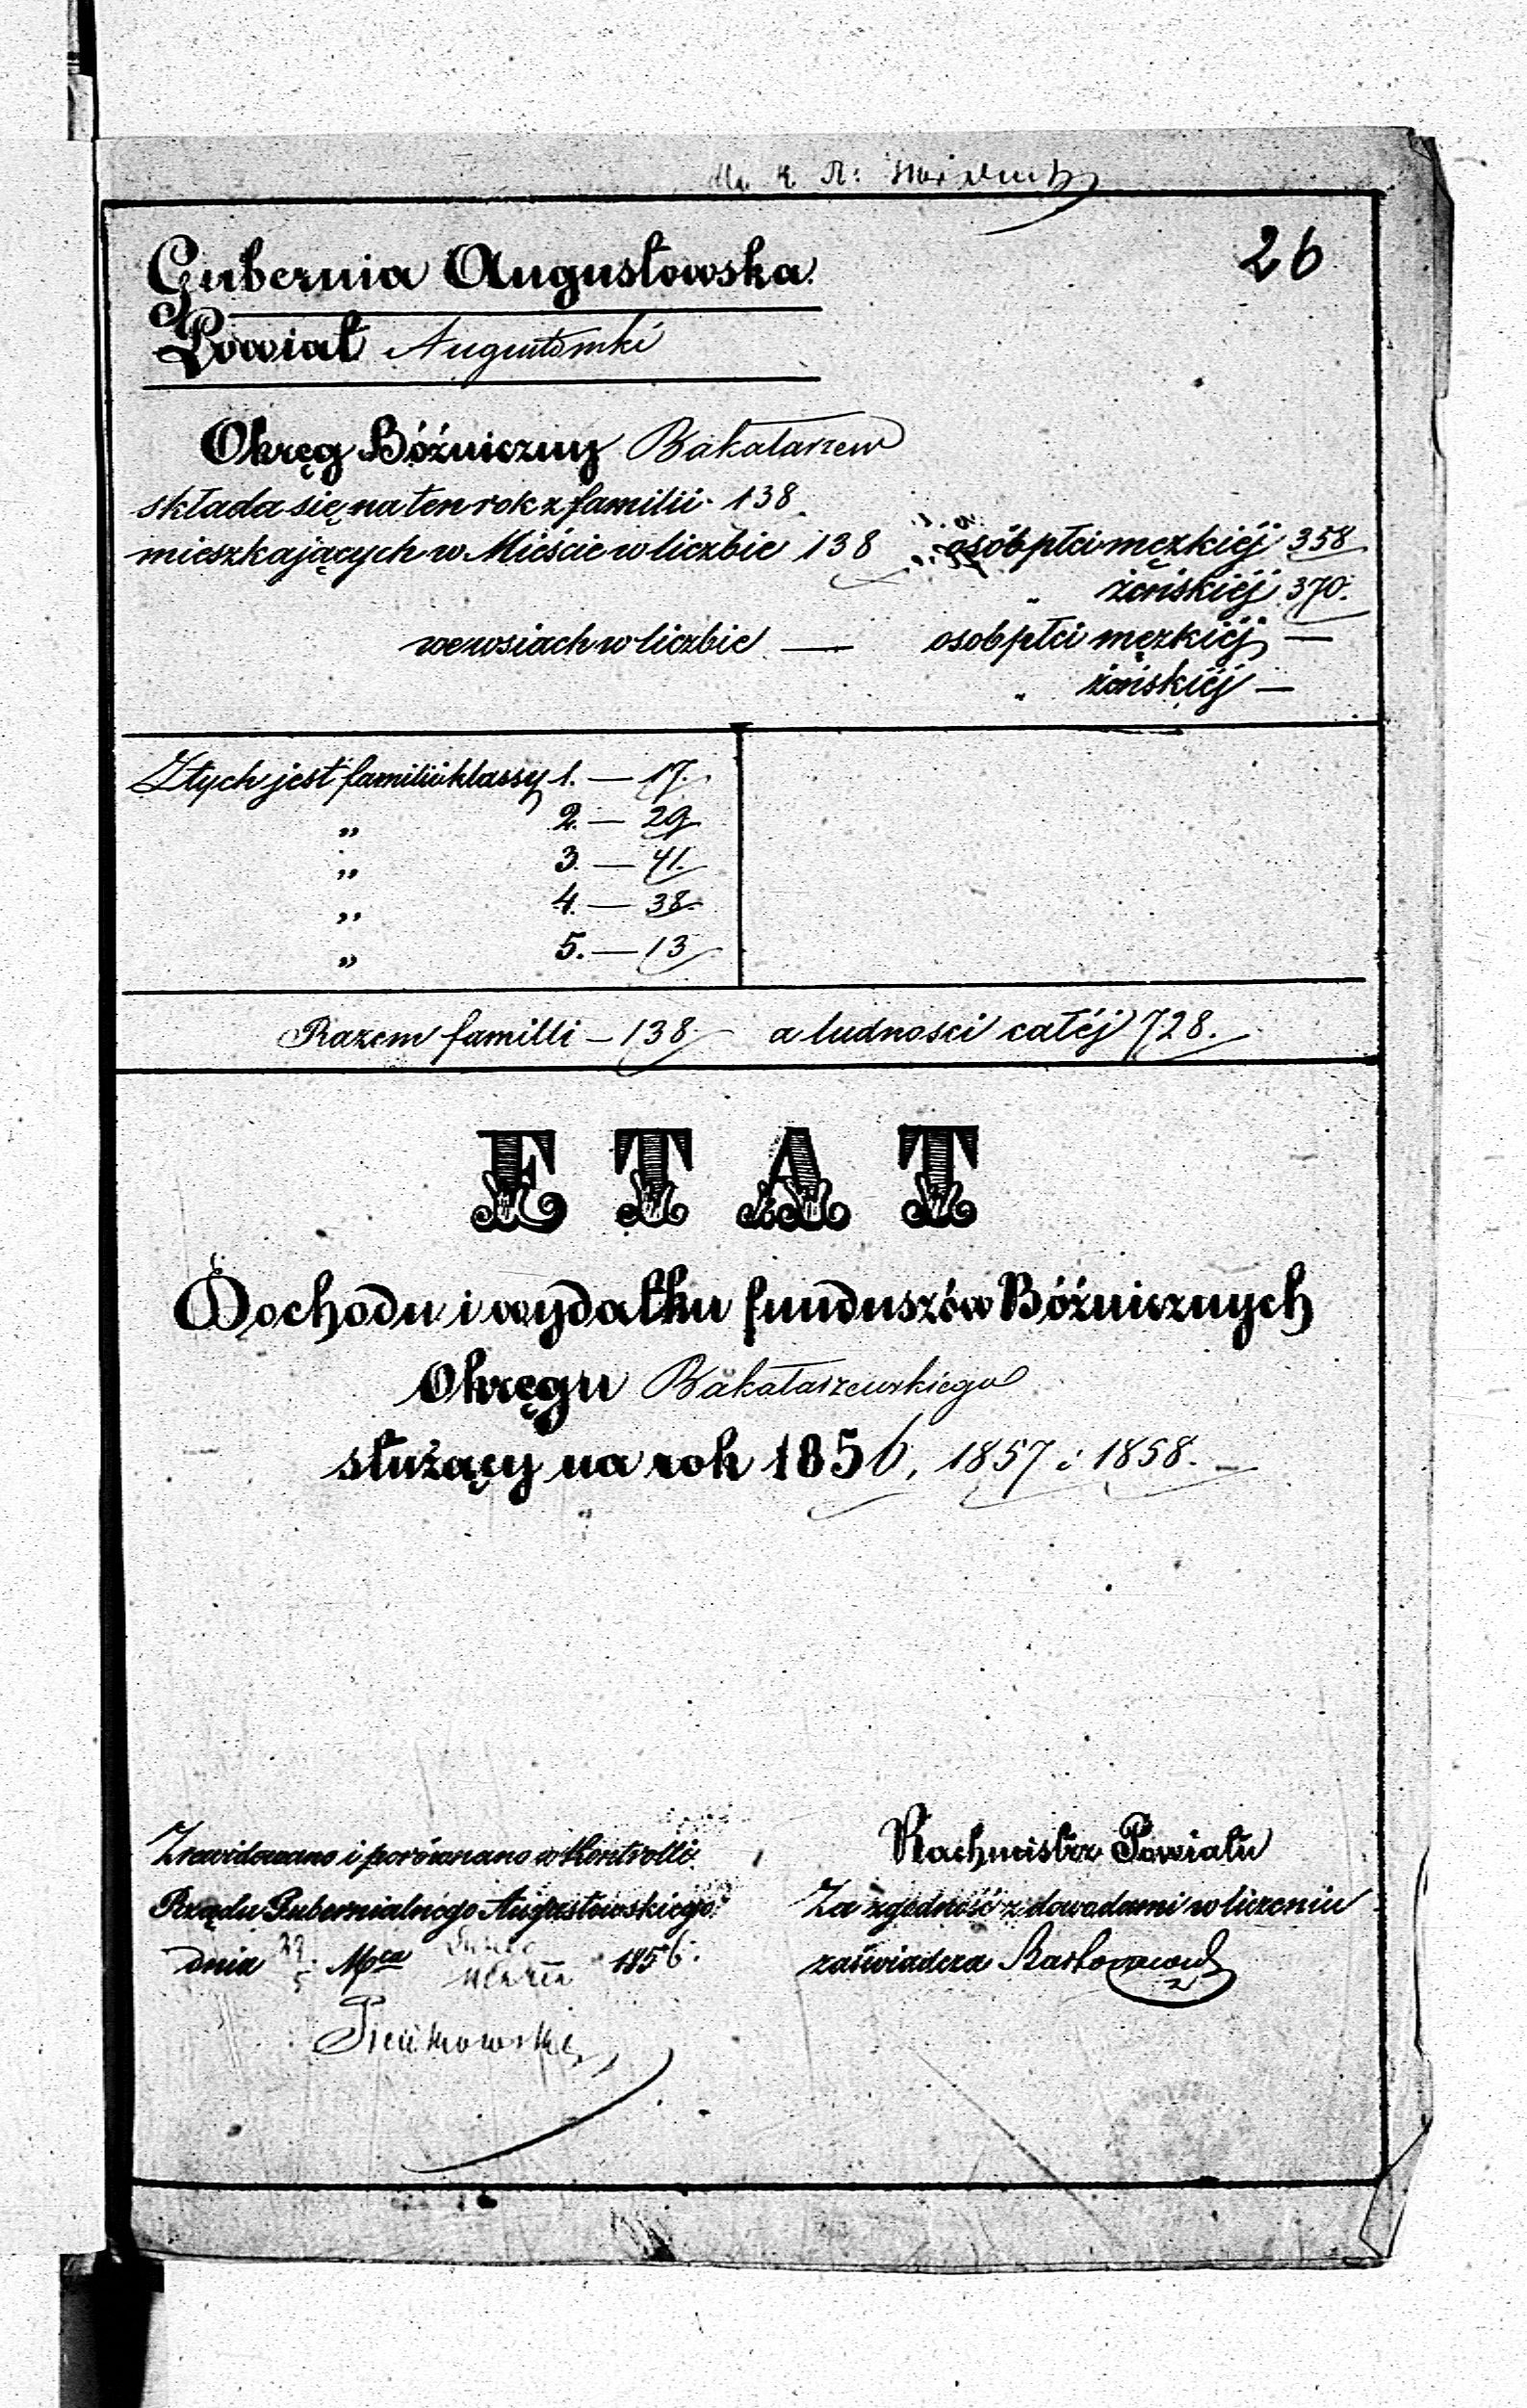 26
Gubernia Augustowska
Powiat Augustowski
Okręg Bóżniczny Bakałarzew
składa się na ten rok z familii 138.
mieszkających w Mieście w liczbie 138 osób płci męzkiéj 358
„ żeńskiéj 370.
we wsiach w liczbie — osob płci męzkiéj —
„ żeńskiéj —
Z tych jest familii klassy 1. — 17.
„ 2. — 29
„ 3. — 41.
„ 4. — 38.
„ 5. — 13
Razem familli — 138 a ludności całéj 728.
ETAT
Dochodu i wydatku funduszów Bóżnicznych
Okręgu Bakałarzewskiego
służący na rok 1856, 1857 i 1858.
Zrewidowano i porównano w Kontrolli
Rządu Gubernialnego Augustowskiego
dnia Mca Marca 1856.
Pieńkowski
Rachmistrz Powiatu
Za zgodność z dowodami w liczeniu
zaświadcza